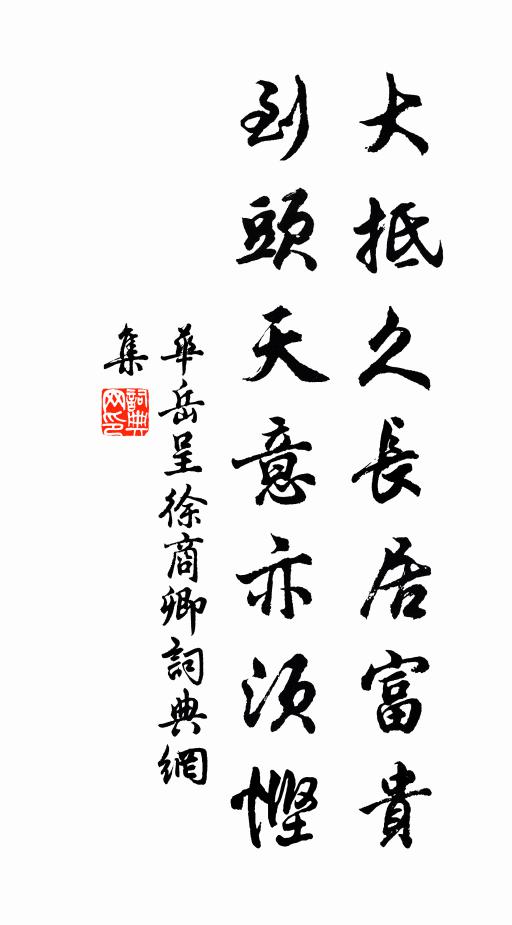 大抵久長居富貴
到頭天意亦須慳
華岳呈徐商卿詞典網
集
詞典
网印